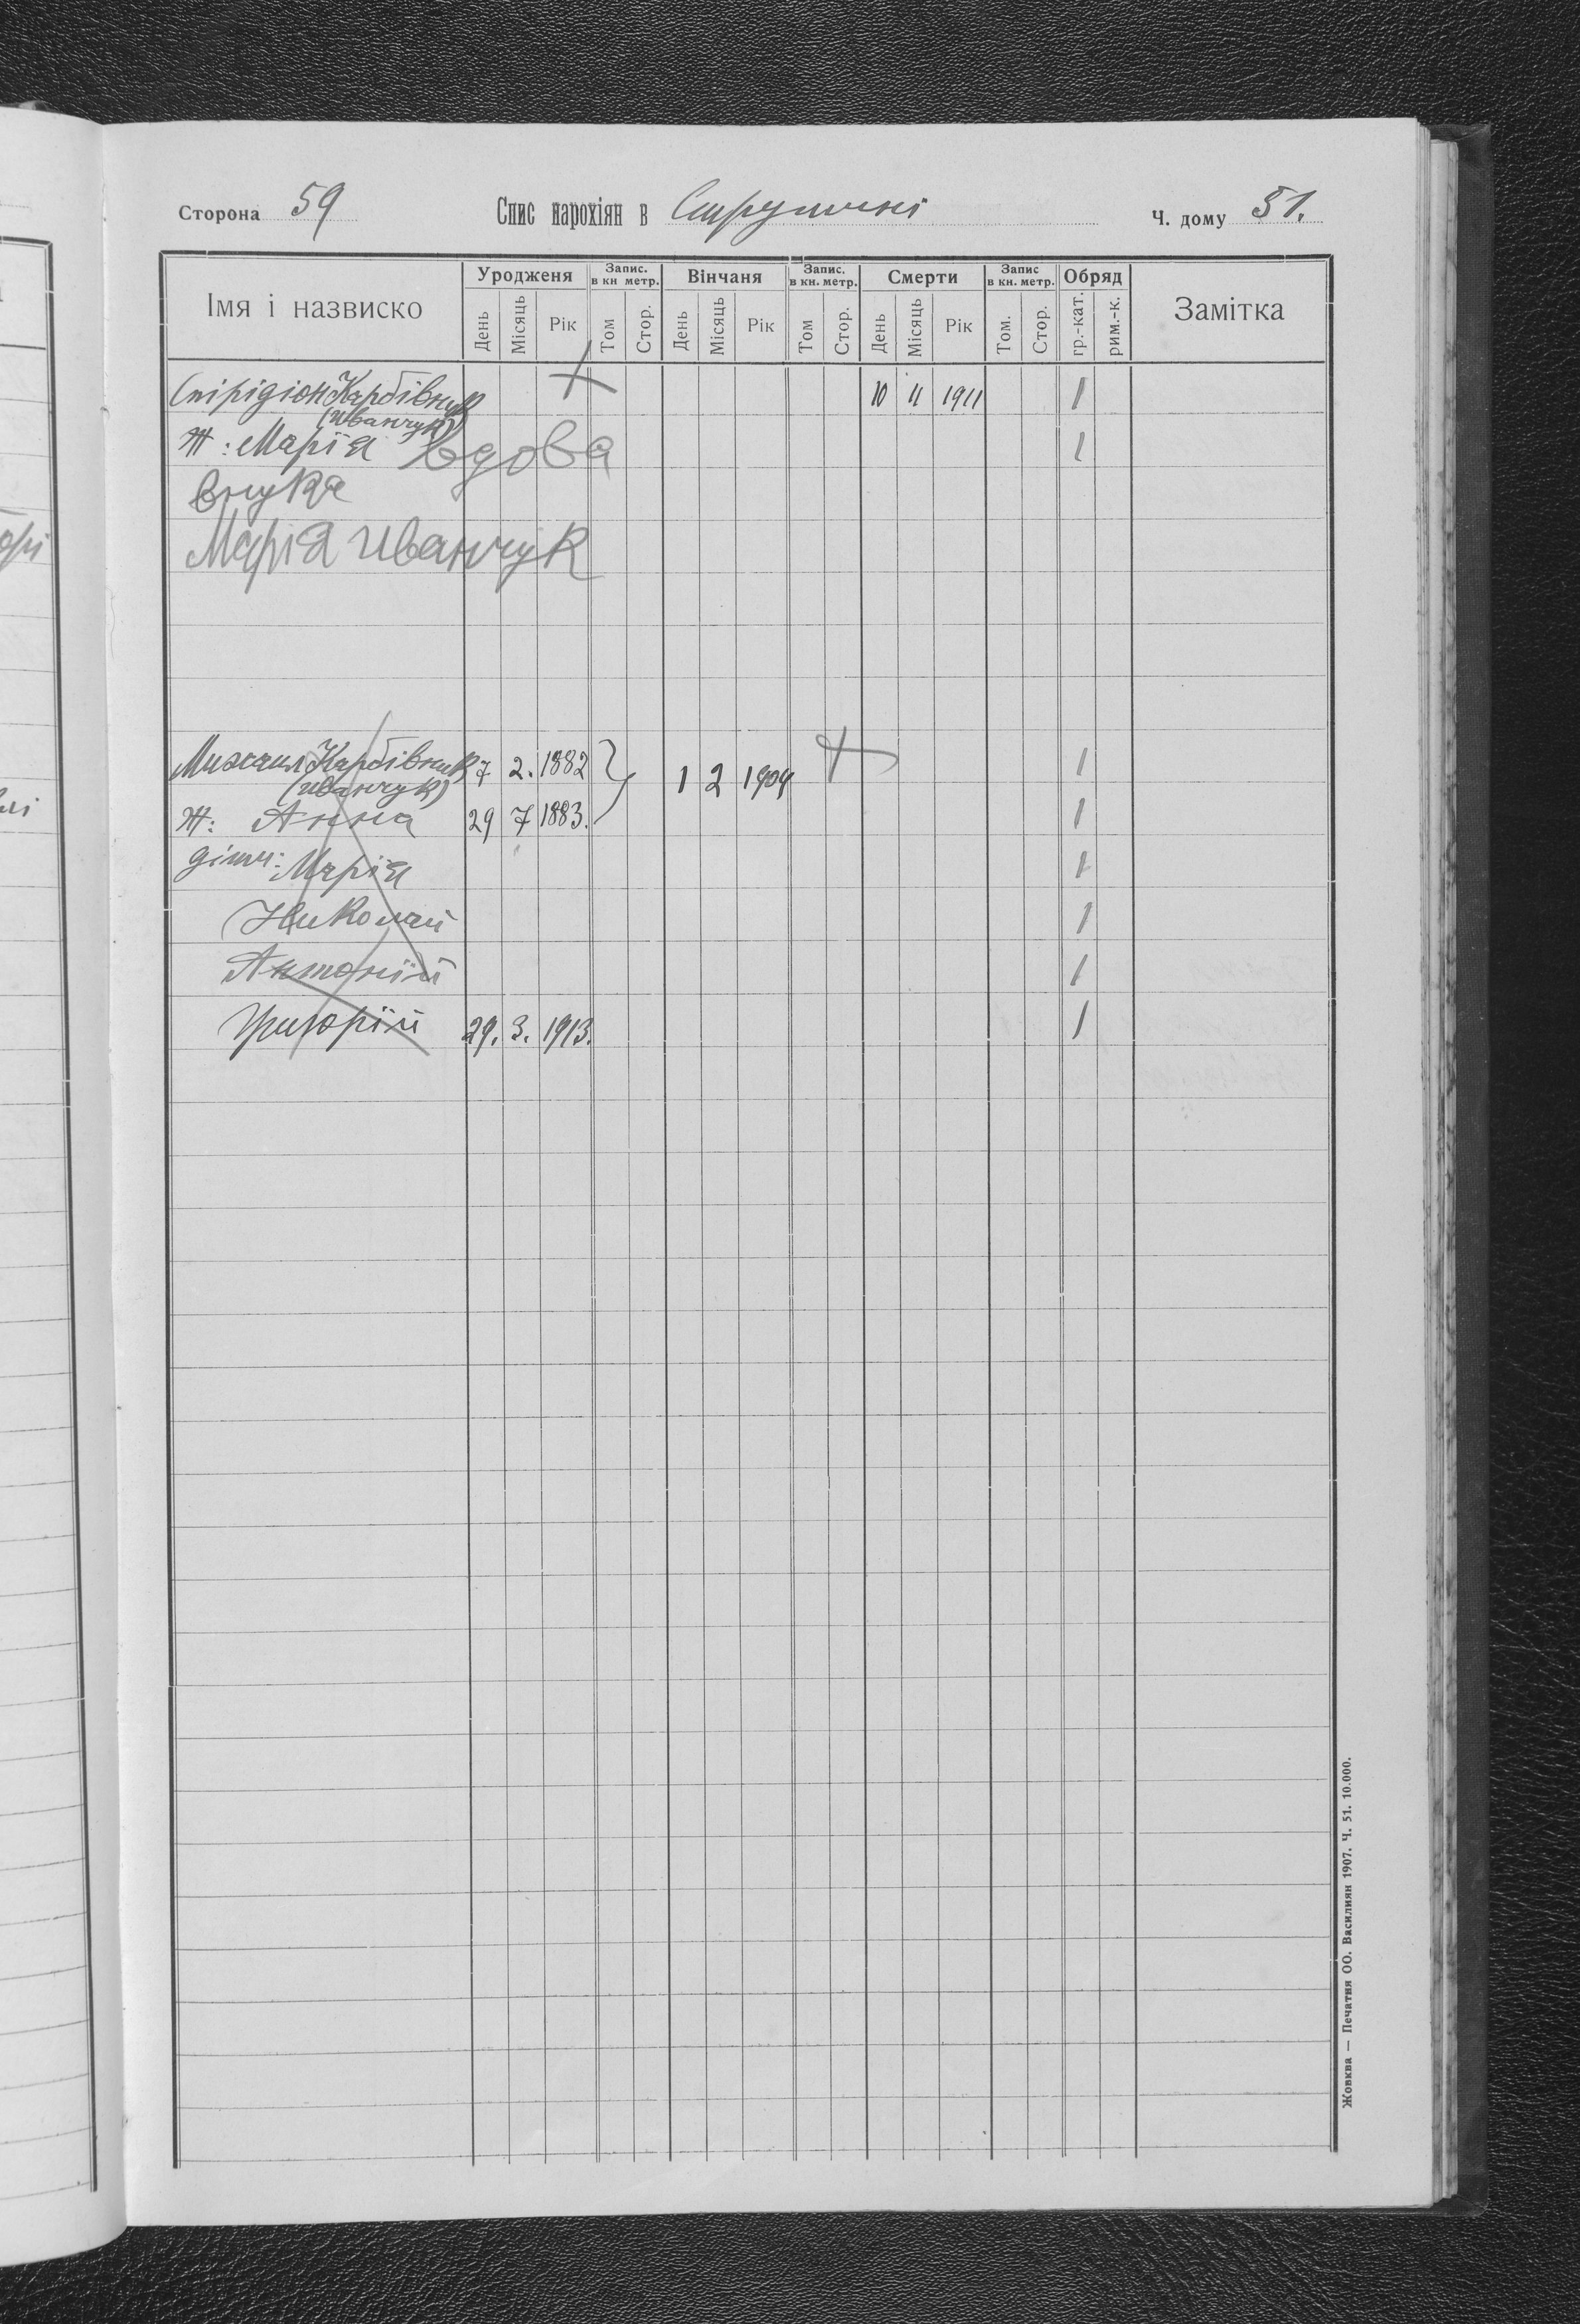 Сторона 59 Спис парохіян в Струтині Ч. дому 51.
Імя і назвиско Уродженя Запис. в кн метр. Вінчаня Запис. в кн. метр. Смерти Запис в кн. метр. Обряд Замітка
День Місяць Рік Том Стор. День Місяць Рік Том Стор. День Місяць Рік Том. Стор. гр.-кат. рим.-к.
Спірідіон Карбівник 10 11 1911 1
(Иванчук)
Ж: Марія вдова 1
внука
Марія Иванчук
Михаил Карбівник 7 2. 1882 1 2 1909 1
(иванчук)
Ж: Анна 29 7 1883. 1
діти: Марія 1
Николай 1
Антоній 1
Григорій 29. 3. 1913. 1
Жовква — Печатня ОО. Василиян 1907. Ч. 51. 10.000.